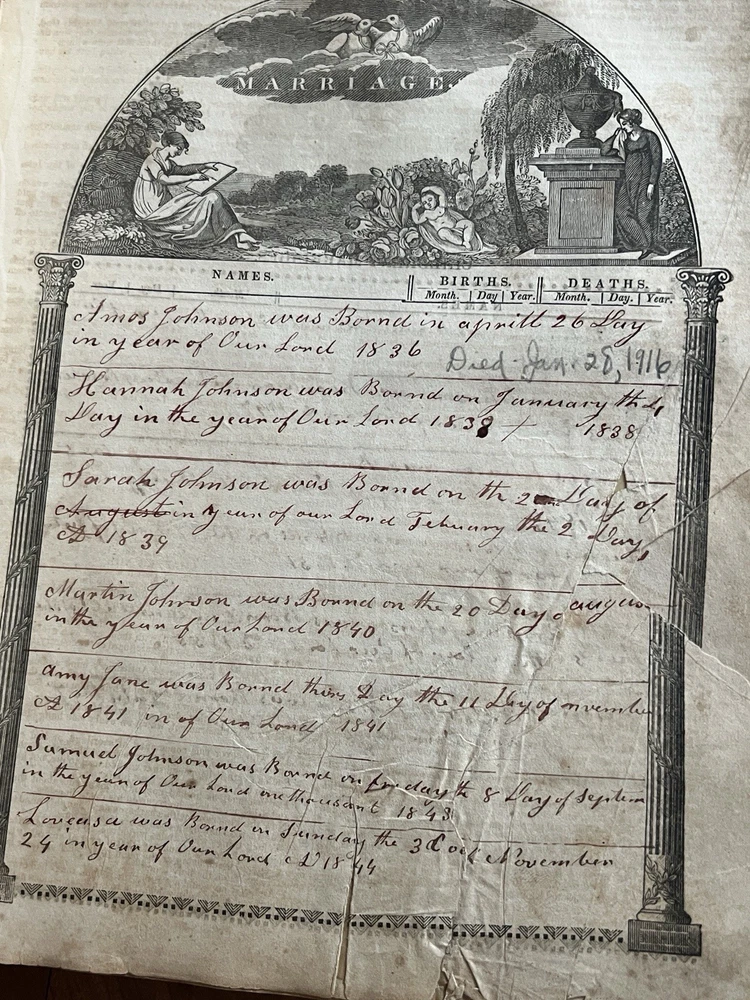 MARRIAGE.
NAMES. BIRTHS. DEATHS.
Month. Day Year. Month. Day. Year.
Amos Johnson was Bornd in aprill 26 Day
in year of Our Lord 1836 Died Jan. 28, 1916
Hannah Johnson was Bornd on January th 4
Day in the year of Our Lord 1838 + 1838
Sarah Johnson was Bornd on th 2 Day of
August in year of our Lord February the 2 Day,
AD 1839
Martin Johnson was Bornd on the 20 Day of augus
in the year of Our Lord 1840
Amy Jane was Bornd this Day the 11 Day of nvembe
AD 1841 in of Our Lord 1841
Samuel Johnson was Bornd on friday th 8 Day of Septem
in the year of Our Lord one thousant 1843
was Bornd on Sunday the 3d November
24 in year of Our Lord AD 1844